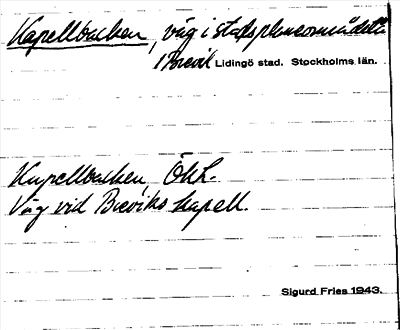 Kapellbacken, väg i stadsplaneområdet
i Brevik Lidingö stad. Stockholms län.
Kapellbacken ÖhL.
Väg vid Breviks kapell.
Sigurd Fries 1943.